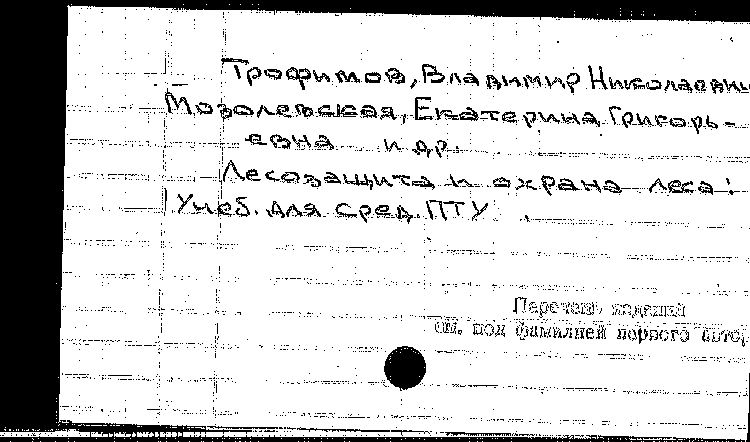 Трофимов, Владимир Николаевич,
Мозолевская, Екатерина Григорь-
евна и др.
Лесозащита и охрана леса:
Учеб. для сред. ПТУ.
Перечень изданий
см. под фамилией первого автор